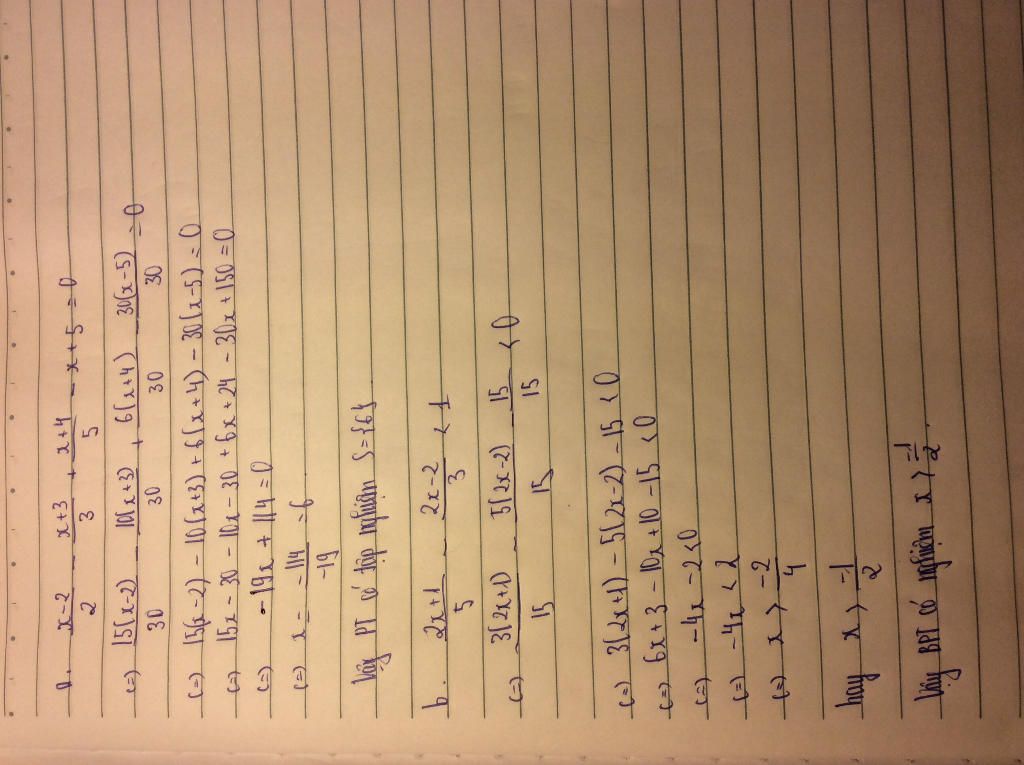 a. \frac{x-2}{2} - \frac{x+3}{3} + \frac{x+4}{5} - x + 5 = 0
(=) \frac{15(x-2)}{30} - \frac{10(x+3)}{30} + \frac{6(x+4)}{30} - \frac{30(x-5)}{30} = 0
(=) 15(x-2) - 10(x+3) + 6(x+4) - 30(x-5) = 0
(=) 15x - 30 - 10x - 30 + 6x + 24 - 30x + 150 = 0
(=) -19x + 114 = 0
(=) x = \frac{-114}{-19} = 6
Vậy PT có tập nghiệm S = {6}
b. \frac{2x+1}{5} - \frac{2x-2}{3} < 1
(=) \frac{3(2x+1)}{15} - \frac{5(2x-2)}{15} - \frac{15}{15} < 0
(=) 3(2x+1) - 5(2x-2) - 15 < 0
(=) 6x + 3 - 10x + 10 - 15 < 0
(=) -4x - 2 < 0
(=) -4x < 2
(=) x > \frac{-2}{4}
hay x > \frac{-1}{2}
Vậy BPT có nghiệm x > \frac{-1}{2}.